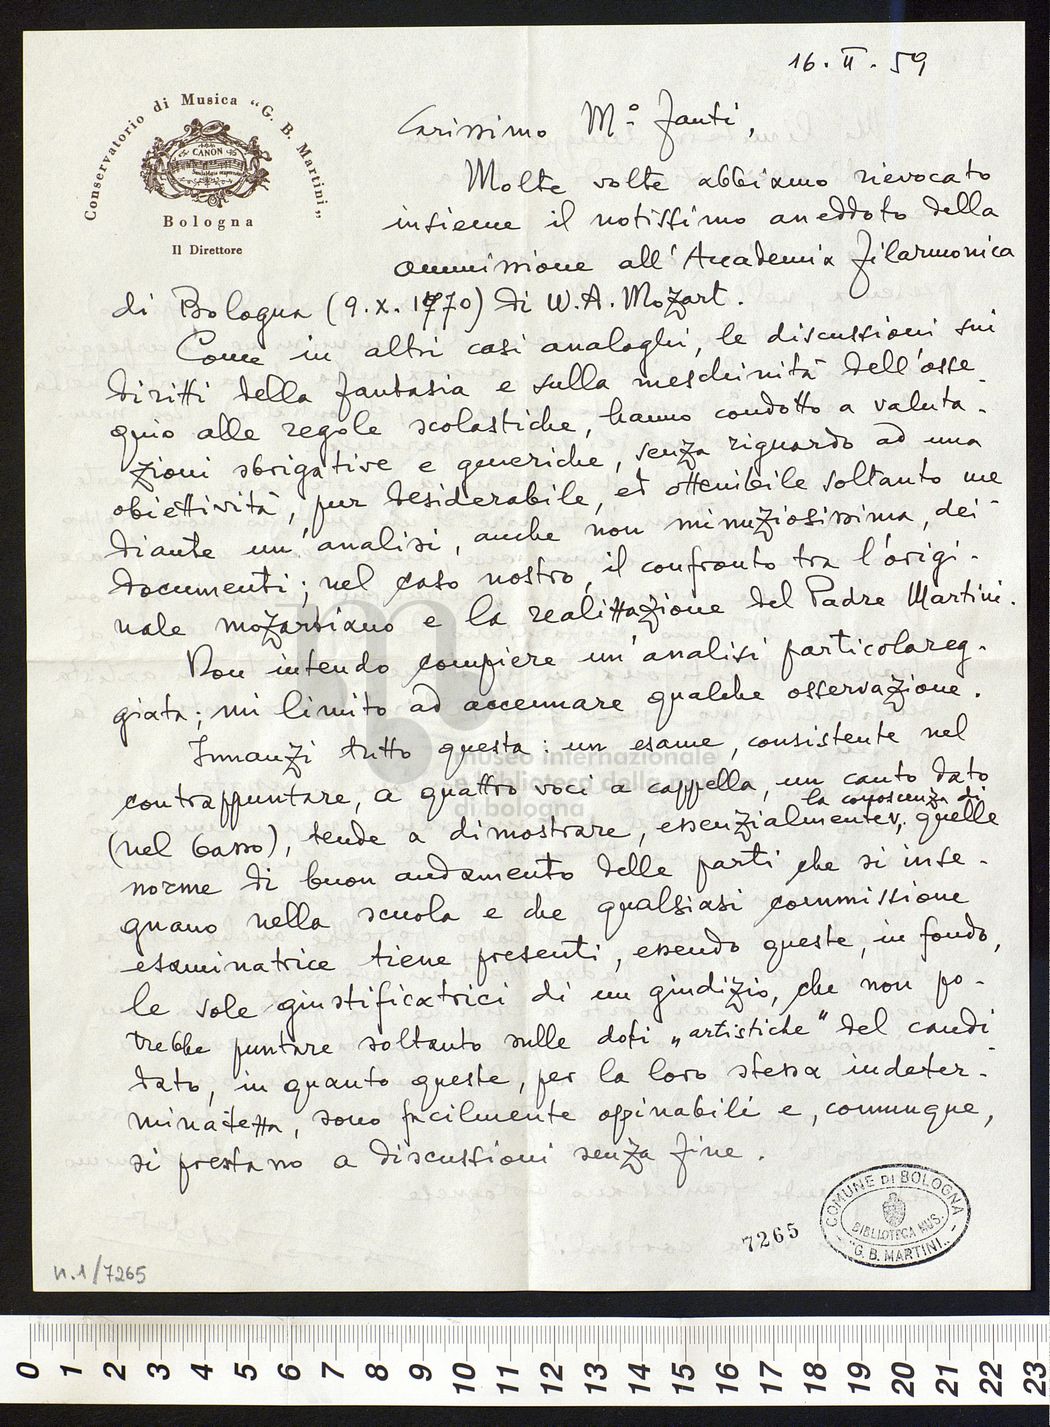 16. II. 59
Conservatorio di Musica "G. B. Martini"
CANON
Bologna
Il Direttore
Carissimo M.º Fanti,
Molte volte abbiamo rievocato
insieme il notissimo aneddoto della
ammissione all'Accademia Filarmonica
di Bologna (9. X. 1770) di W. A. Mozart.
Come in altri casi analoghi, le discussioni sui
diritti della fantasia e sulla meschinità dell'osse-
quio alle regole scolastiche, hanno condotto a valuta-
zioni sbrigative e generiche, senza riguardo ad una
obiettività, pur desiderabile, ed ottenibile soltanto me-
diante un'analisi, anche non minuziosissima, dei
documenti; nel caso nostro, il confronto tra l'origi-
nale mozartiano e la realizzazione del Padre Martini.
Non intendo compiere un'analisi particolareg-
giata; mi limito ad accennare qualche osservazione.
Innanzi tutto questa: un esame, consistente nel
contrappuntare, a quattro voci a cappella, un canto dato
(nel basso), tende a dimostrare, essenzialmente, la conoscenza di quelle
norme di buon andamento delle parti che si inse-
gnano nella scuola e che qualsiasi commissione
esaminatrice tiene presenti, essendo queste, in fondo,
le sole giustificatrici di un giudizio, che non po-
trebbe puntare soltanto sulle doti „artistiche" del candi-
dato, in quanto queste, per la loro stessa indeter-
minatezza, sono facilmente opinabili e, comunque,
si prestano a discussioni senza fine.
museo internazionale
e biblioteca della musica
di bologna
7265
COMUNE DI BOLOGNA
BIBLIOTECA MUS.
"G. B. MARTINI"
n. 1/7265
0 1 2 3 4 5 6 7 8 9 10 11 12 13 14 15 16 17 18 19 20 21 22 23